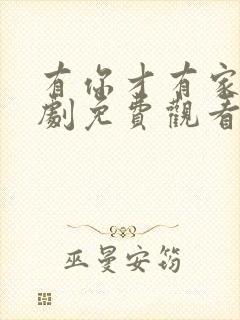 有你才有家
劇免費觀看
巫曼安筠